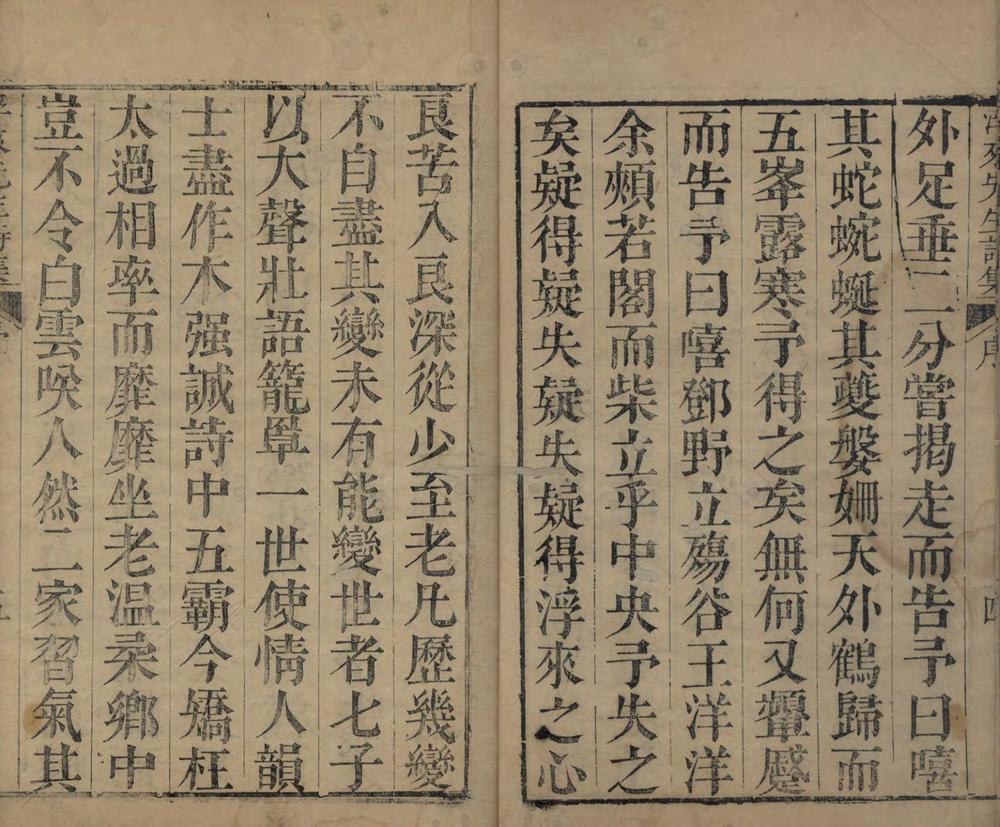 浮來先生詩集 序 四
外足垂二分嘗揭走而告予曰嘻
其蛇蜿蜒其夔媻姍天外鶴歸而
五峯露寒予得之矣無何又顰蹙
而告予曰嘻鄧野立殤谷王洋洋
余頰若閣而柴立乎中央予失之
矣疑得疑失疑失疑得浮來之心
良苦入良深從少至老凡歷幾變
不自盡其變未有能變世者七子
以大聲壯語籠罩一世使情人韻
士盡作木强誠詩中五霸今矯枉
太過相率而靡靡坐老溫柔鄉中
豈不令白雲咲人然二家習氣其